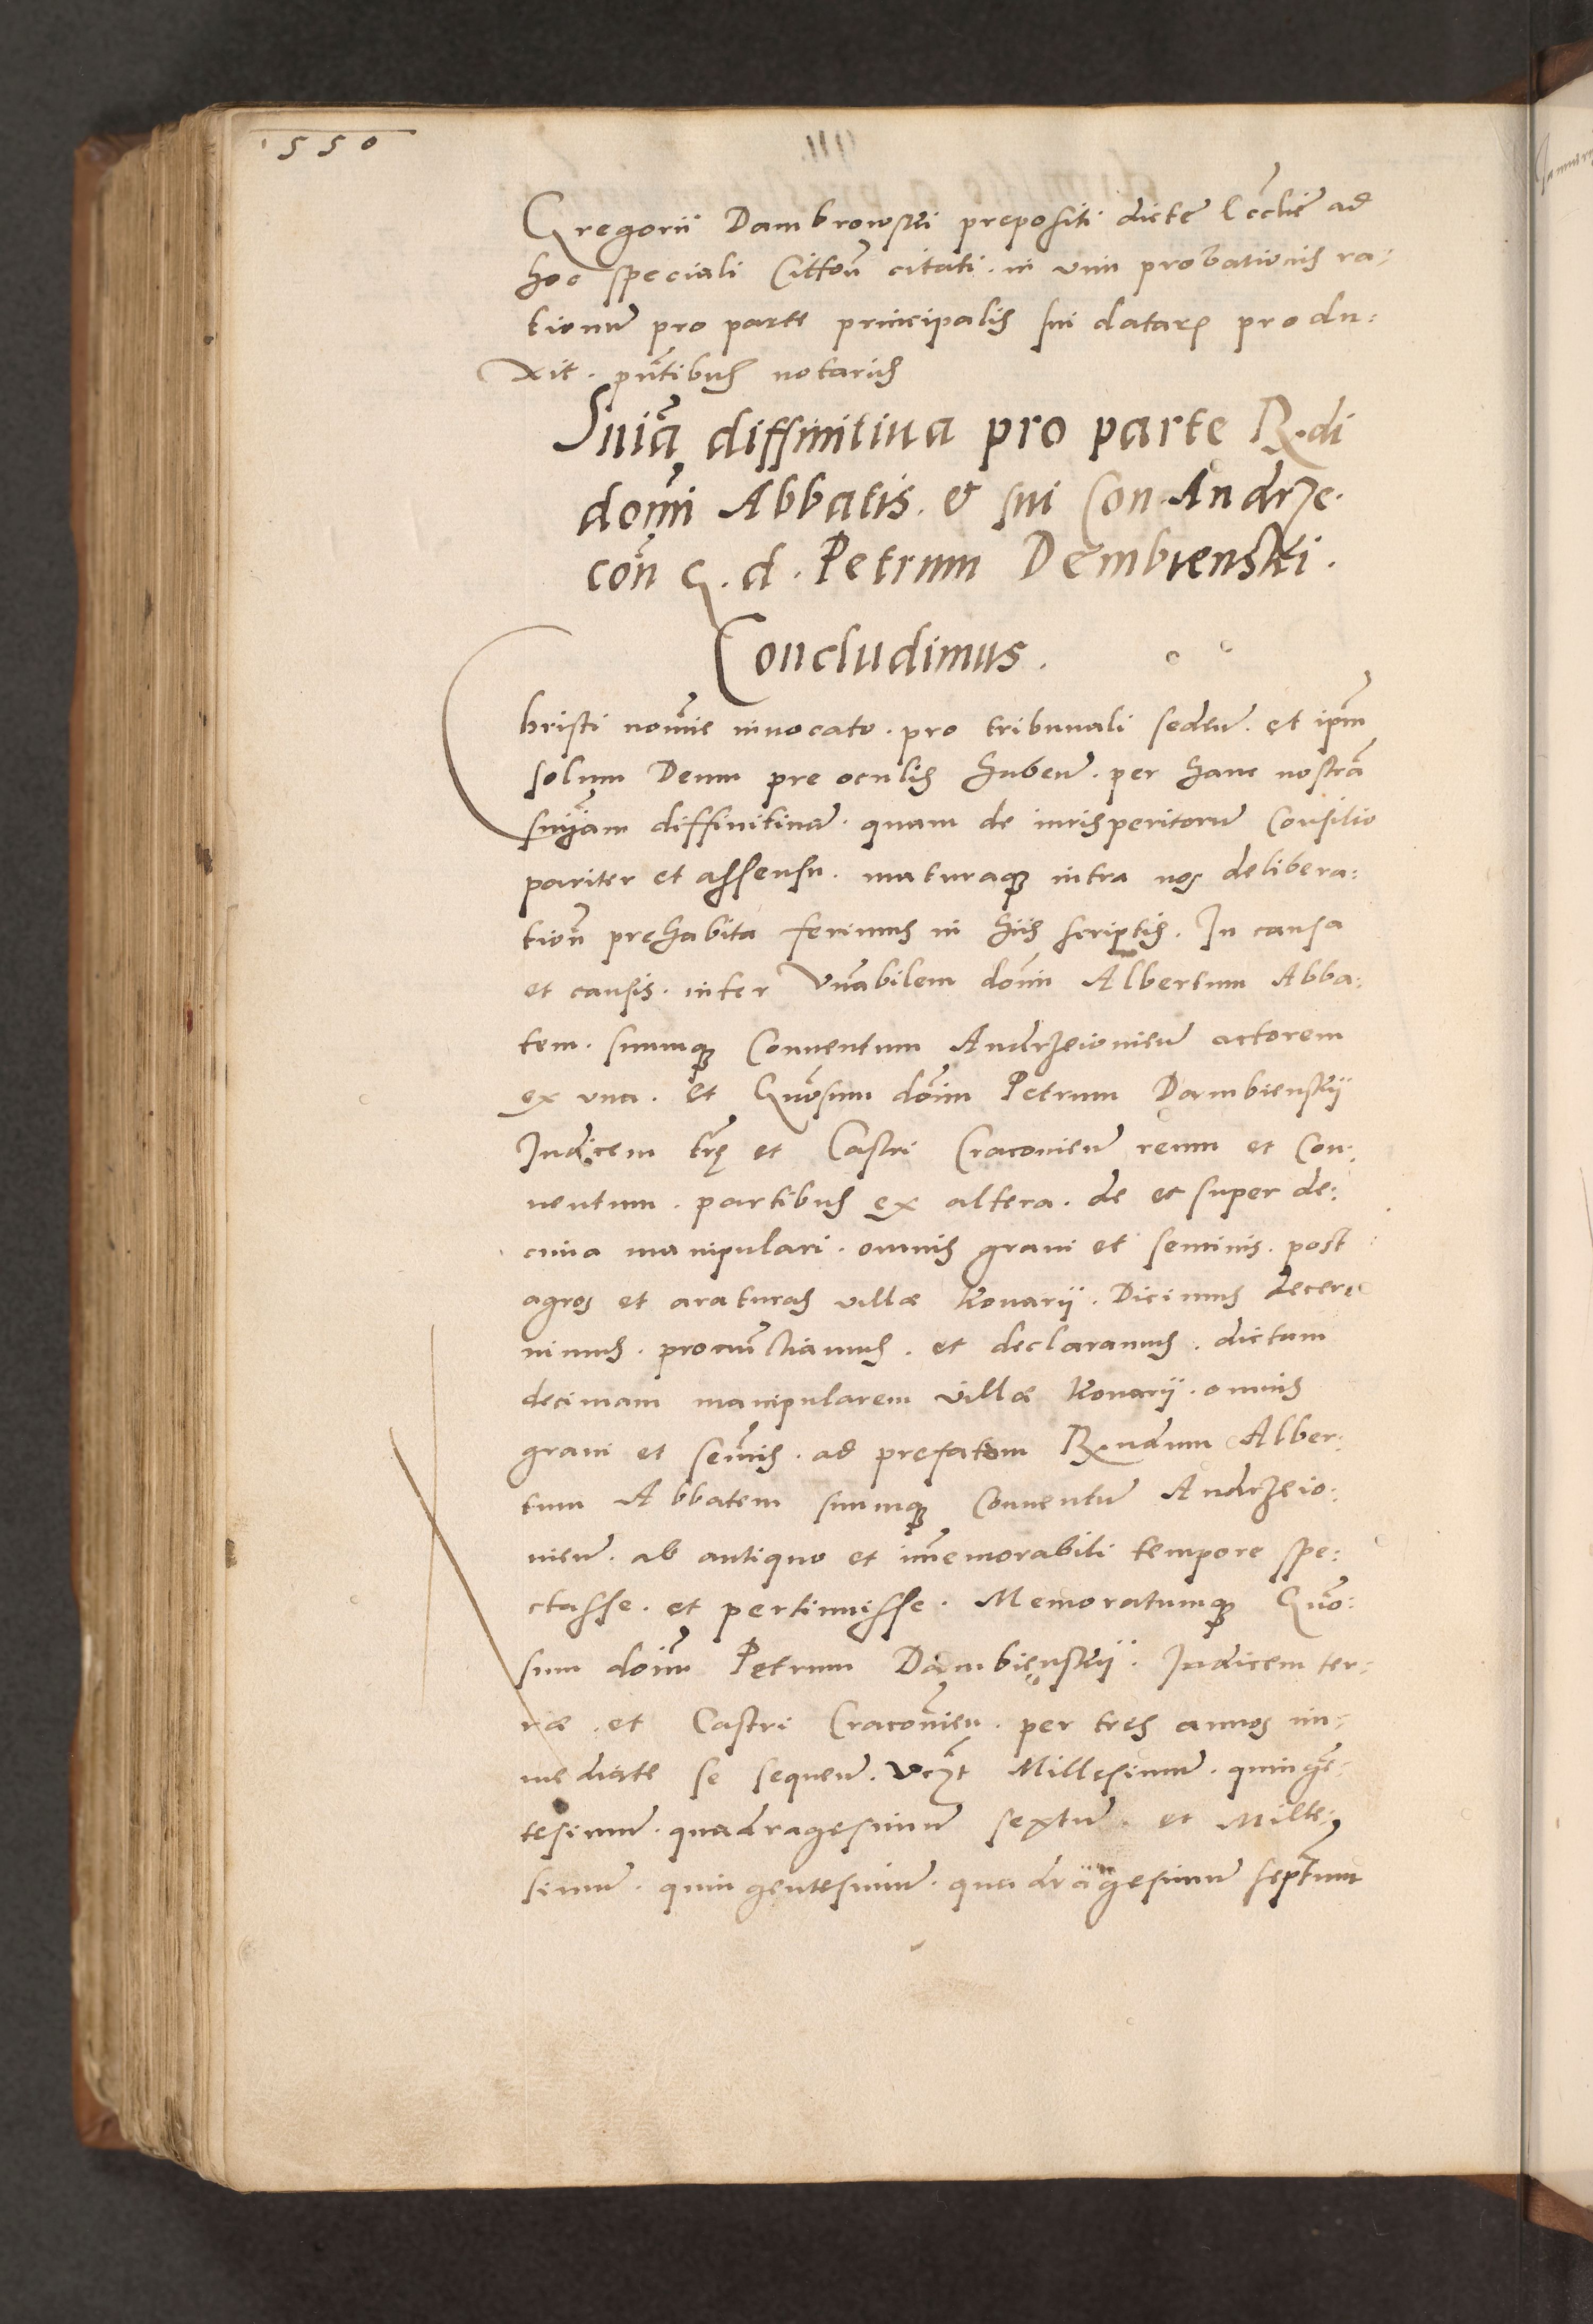 1550
Gregorii Dambrowski prepositi dictẽ Ecclïe ad
hoc speciali Cittoñ citati . in vim probationis ra:
tionũ pro parte principalis sui datarꝫ produ:
xit . pñtibus notariis
Sñia diffinitiua pro parte R.di
domĩ Abbatis . et sui Con . Andrze .
coñ G . d . Petrum Dembienski .
Concludimus .
Christi noĩe inuocato . pro tribunali seden̄ . et ipm̃
solum Deum pre oculis haben̄ . per hanc nostrã
sñiam diffinitiuã . quam de iurisperitorũ Consilio
pariter et assensu . maturaqꝫ intra nos delibera:
tioñ prehabita ferimus in hiis scriptis . In causa
et causis . inter Vñabilem doñũ Albertum Abba:
tem . suumqꝫ Conuentum Andrzeiouien̄ actorem
ex vna . et Gñosum doim̃ Petrum Dambienskij
Judicem trẽ et Castri Cracouien̄ reum et Con:
uentum . partibus ex altera . de et super de:
cima manipulari . omnis grani et seminis . post
agros et araturas villæ Konarij . Dicimus decer:
nimus . pronunctiamus . et declaramus . dictam
decimam manipularem villæ Konarij . omnis
grani et sem̃is . ad prefatum R.ndum Alber:
tum Abbatem suumqꝫ conuentũ Andrzeio:
uien̄ . ab antiquo et im̃emorabili tempore spe:
ctasse . et pertinuisse . Memoratumqꝫ Gño:
sum doim̃ Petrum Dambienskij . Judicem ter:
ræ . et Castri Cracouieñ . per tres annos im:
mediate se sequen̄ . vcꝫt Millesimũ . quingẽ:
tesimũ . quadragesimũ sextũ . et Mille:
simũ . quingentesimũ . quadragesimũ septim̃um